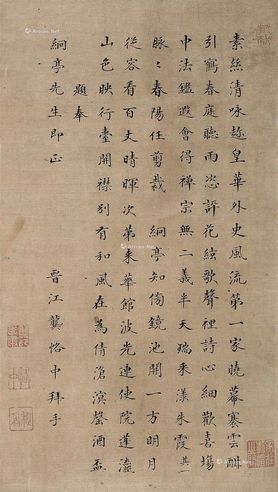 素絲清詠趂皇華外史風流第一家曉幕褰雲酣
引鶴春庭聽雨恣評花絃歌聲裡詩心細歡喜場
中法鑑遐會得禪宗無二義半天瑞采漾朱霞 其一
脉〻春陽任剪裁 絅亭知傍鏡池開一方明月
從容看百丈晴暉次第來華館波光連使院蓬瀛
山色映行臺開襟別有和風在爲倩滄溟罄酒盃
題奉
絅亭先生即正
晉江龔恪中拜手